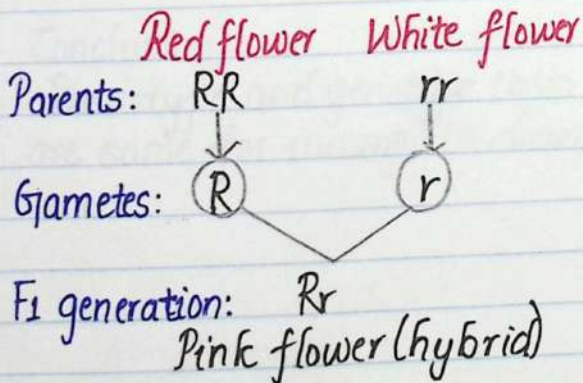 Red flower White flower
Parents: RR rr
Gametes: R r
F1 generation: Rr
Pink flower (hybrid)